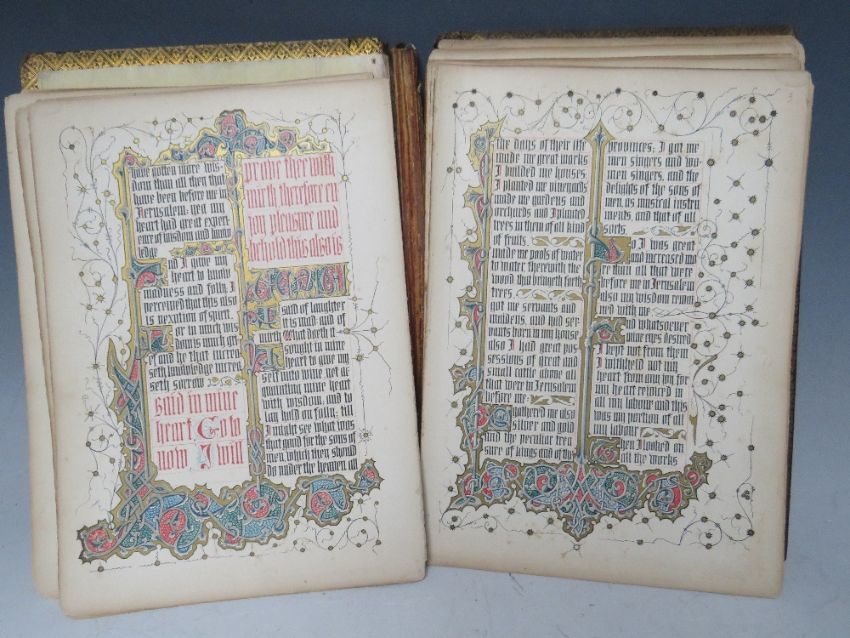 have gotten more wis
dom than all then that
have been before me in
Jerusalem: yea my
heart had great experi
ence of wisdom and know
ledge
And I gave my
heart to know
madness and folly I
perceived that this also
is vexation of spirit
For in much wis
dom is much gri
ef and he that increa
seth knowledge increa
seth sorrow
said in mine
heart Go to
now I will
prove thee with
mirth therefore en
joy pleasure and
behold this also is
vanity I
said of laughter
it is mad: and of
mirth What doeth it
I sought in mine
heart to give my
self unto wine yet ac
quainting mine heart
with wisdom, and to
lay hold on folly; till
I might see what was
that good for the sons of
men, which then should
do under the heaven all
3
the days of their life
made me great works
I builded me houses;
I planted me vineyards
made me gardens and
orchards and I planted
trees in them of all kind
of fruits.
made me pools of water
to water therewith the
wood that bringeth forth
trees.
got me servants and
maidens, and had ser
vants born in my house
also I had great pos
sessions of great and
small cattle above all
that were in Jerusalem
before me
I gathered me also
silver and gold
and the peculiar trea
sure of kings and of the
provinces; I gat me
men singers and wo
men singers, and the
delights of the sons of
men, as musical instru
ments, and that of all
sorts.
So I was great
and increased mo
re than all that were
before me in Jerusalem
also my wisdom remai
ned with me
And whatsoever
mine eyes desired
I kept not from them
I withheld not my
heart from any joy for
my heart rejoiced in
all my labour and this
was my portion of all
my labour
Then I looked on
all the works